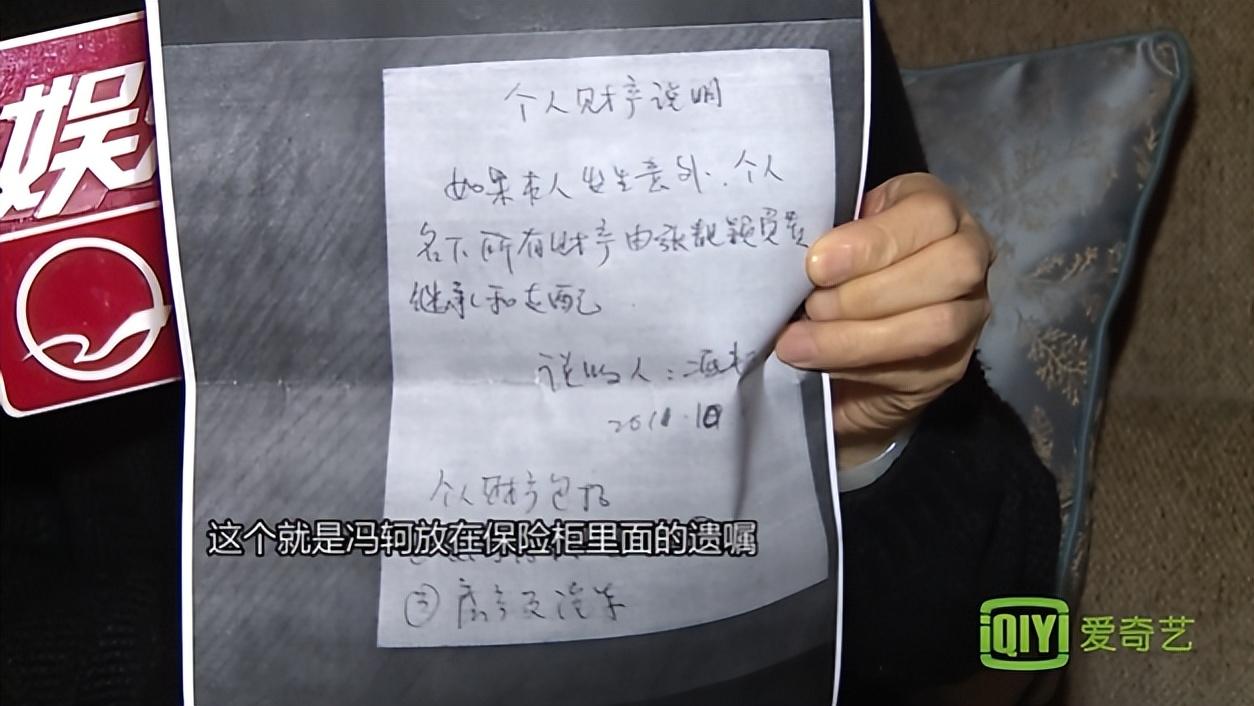 娱
个人财产说明
如果本人发生意外,个人
名下所有财产由张靓颖负责
继承和支配.
说明人:冯轲
2011.10
个人财产包括
这个就是冯轲放在保险柜里面的遗嘱
③房产及汽车
iQIYI 爱奇艺